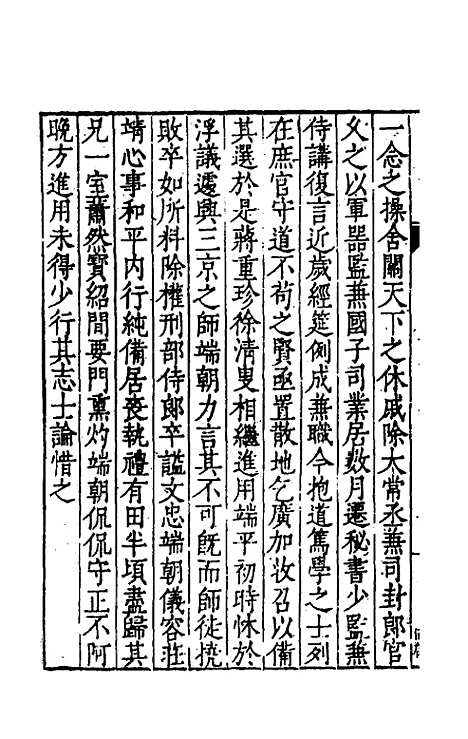 一念之操舍關天下之休戚除太常丞兼司封郎官
久之以軍器監兼國子司業居數月遷秘書少監兼
侍講復言近歲經筵例成兼職今抱道篤學之士列
在庶官守道不苟之賢亟置散地乞廣加汝召以備
其選於是蔣重珍徐清叟相繼進用端平初時怵於
浮議遽興三京之師端朝力言其不可旣而師徒撓
敗卒如所料除權刑部侍郎卒謚文忠端朝儀容莊
靖心事和平内行純備居喪執禮有田半頃盡歸其
兄一室蕭然寶紹間要門熏灼端朝侃侃守正不阿
晚方進用未得少行其志士論惜之